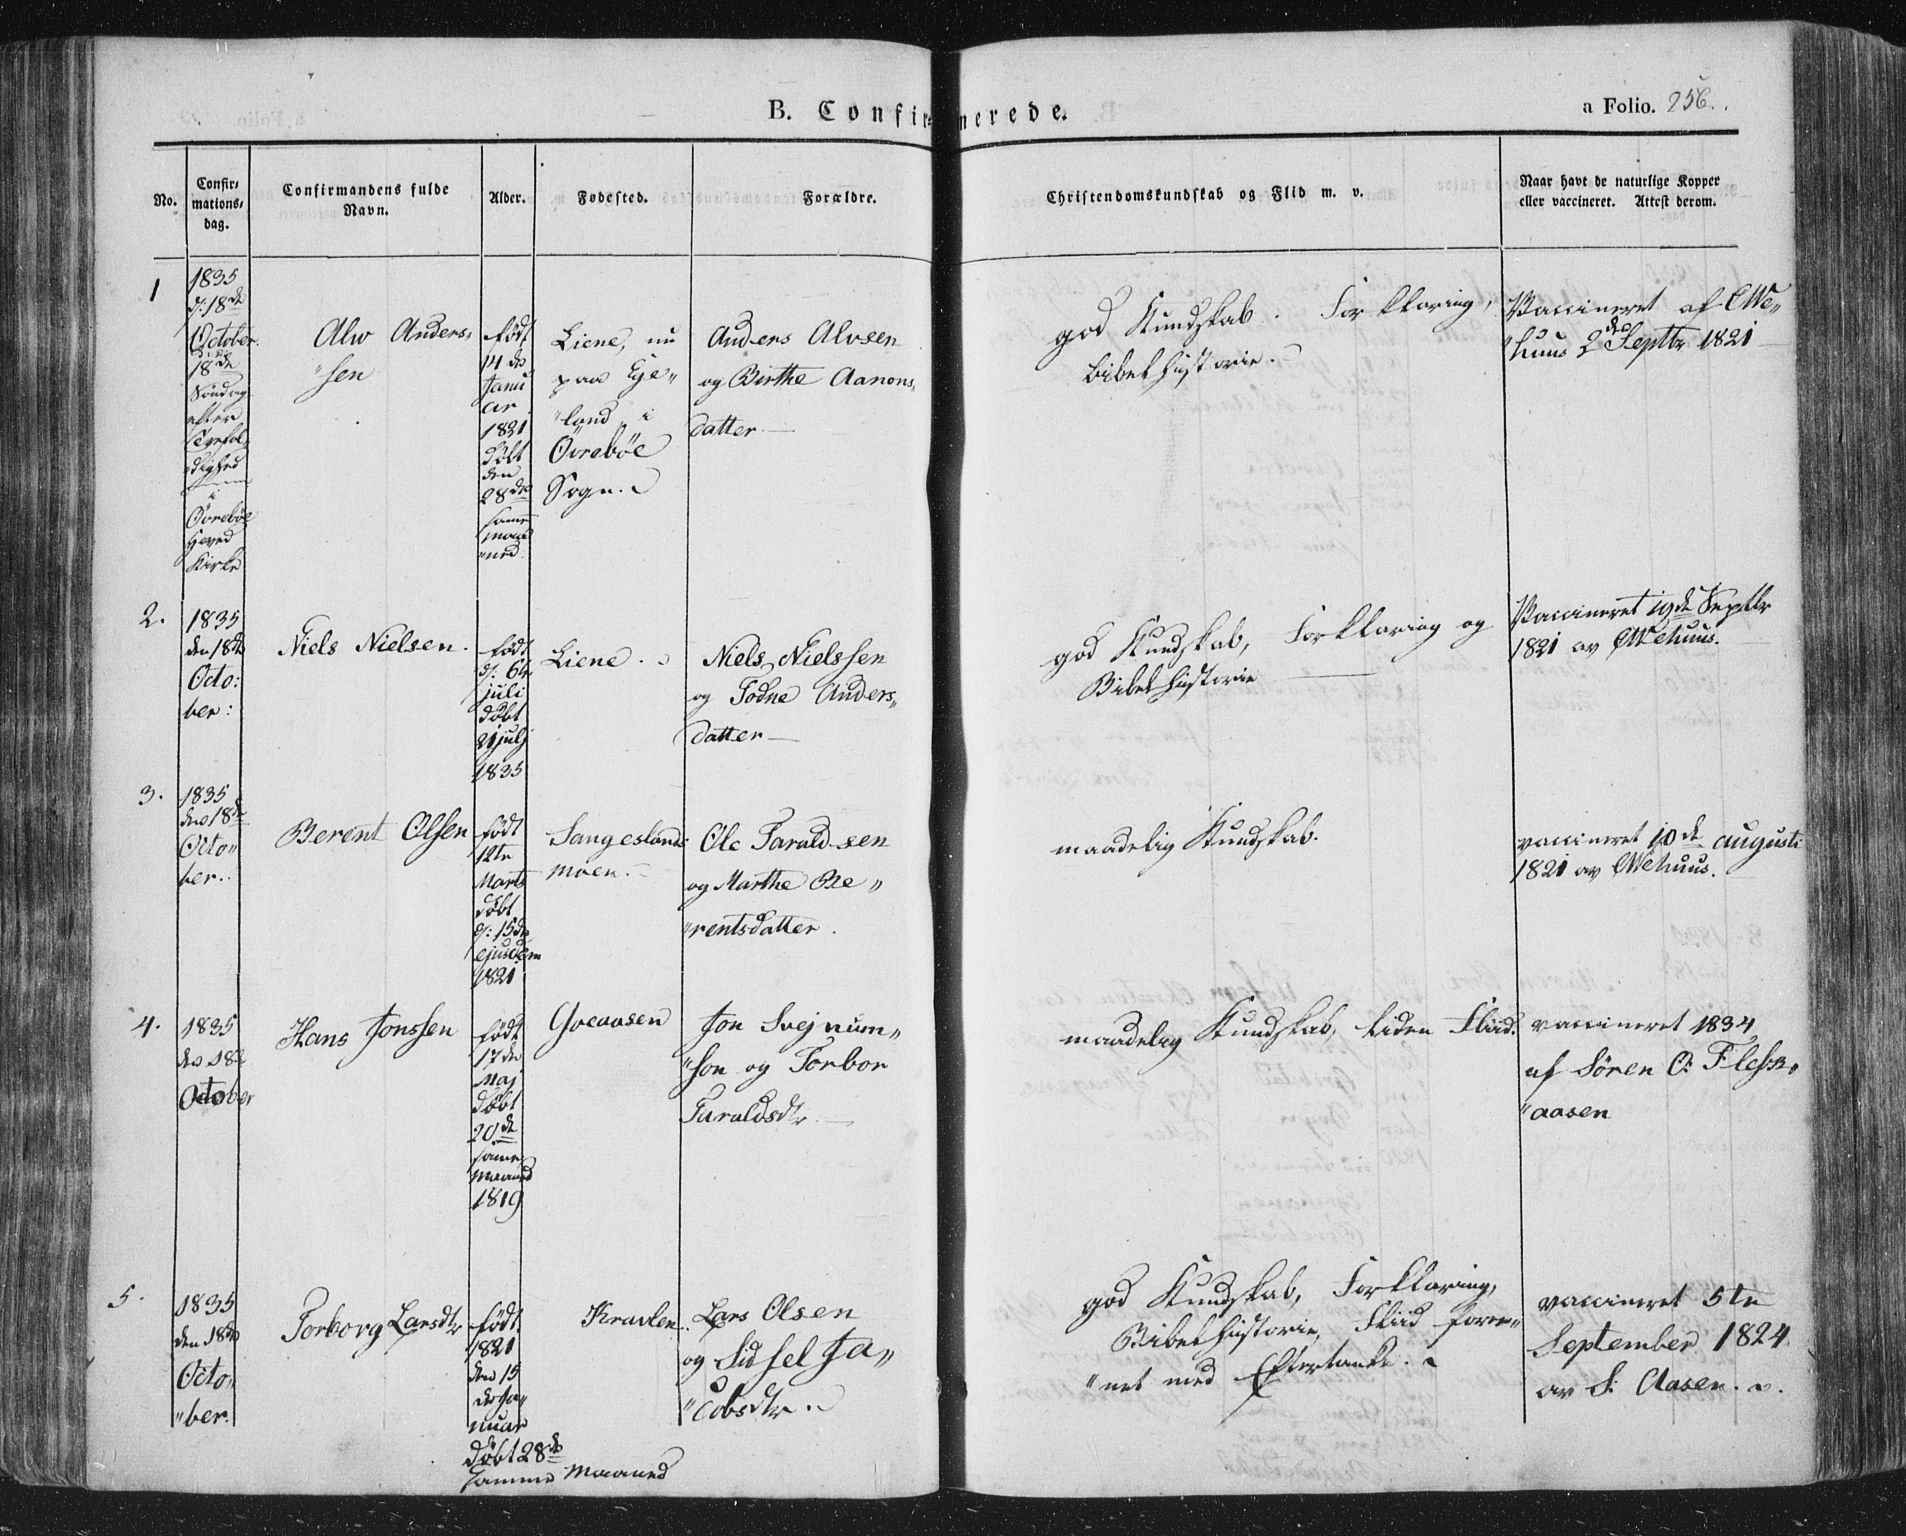 B. Confirmerede.
a Folio. 256.
No.
Confir-
mations-
dag.
Confirmandens fulde
Navn.
Alder.
Fødested.
Forældre.
Christendomskundskab og Flid m. v.
Naar havt de naturlige Kopper
eller vaccineret. Attest derom.
1
1835
d: 18de
October
18de
Søndag
efter
Trefol„
„dighed
i
Övrebøe
Hoved
Kirke
Alw Anders„
„sen
født
14 de
Janu
ar
1821
döbt
den
28de
samme
maa
„ned
Liene, nu
paa Ege„
„land i
Övrebøe
Sogn.
Anders Alvsen
og Birthe Aanons„
datter
god Kundskab. Forklaring,
bibelhistorie.
Vaccineret af Ws
„huus 2den Septbr 1821
2.
1835
den 18de
Octo:
ber:
Niels Nielsen.
født
d: 6te
juli
döbt
21 julj
1835
Liene.
Niels Nielssen
og Todne Anders„
datter
god Kundskab, Forklaring og
Bibelhistorie
Vaccineret 19de Septbr
1821 av Wehuus.
3.
1835
den 18de
Octo„
ber.
Berent Olsen
født
12te
Marts
döbt
d: 15de
ejusdem
1821
Sangeslands
moen.
Ole Taraldsen
og Marthe Be„
„rentsdatter.
maadelig Kundskab.
vaccineret 10de augusti
1821 av Wehuus.
4.
1835
den 18de
October
Hans Jonssen
født
17de
Maj
döbt
20de
samme
maaned
1819
Gveaasen
Jon Svejnum„
„son og Torbor
Taraldsdtr
maadelig Kundskab, liden Fliid.
vaccineret 1834
af Søren O: Flesk„
„aasen
5.
1835
den 18de
Octo„
„ber.
Torborg Larsdtr
født
1821
den 15
de Ja„
nuar
döbt 28de
samme Maaned
Kravlen.
Lars Olsen
og Sidsel Ja„
„cobsdtr.
god Kundskab, Forklaring,
Bibelhistorie, Fliid fore„
„net med Eftertanke.
vaccineret 5te
September 1824
av S. Aasen.